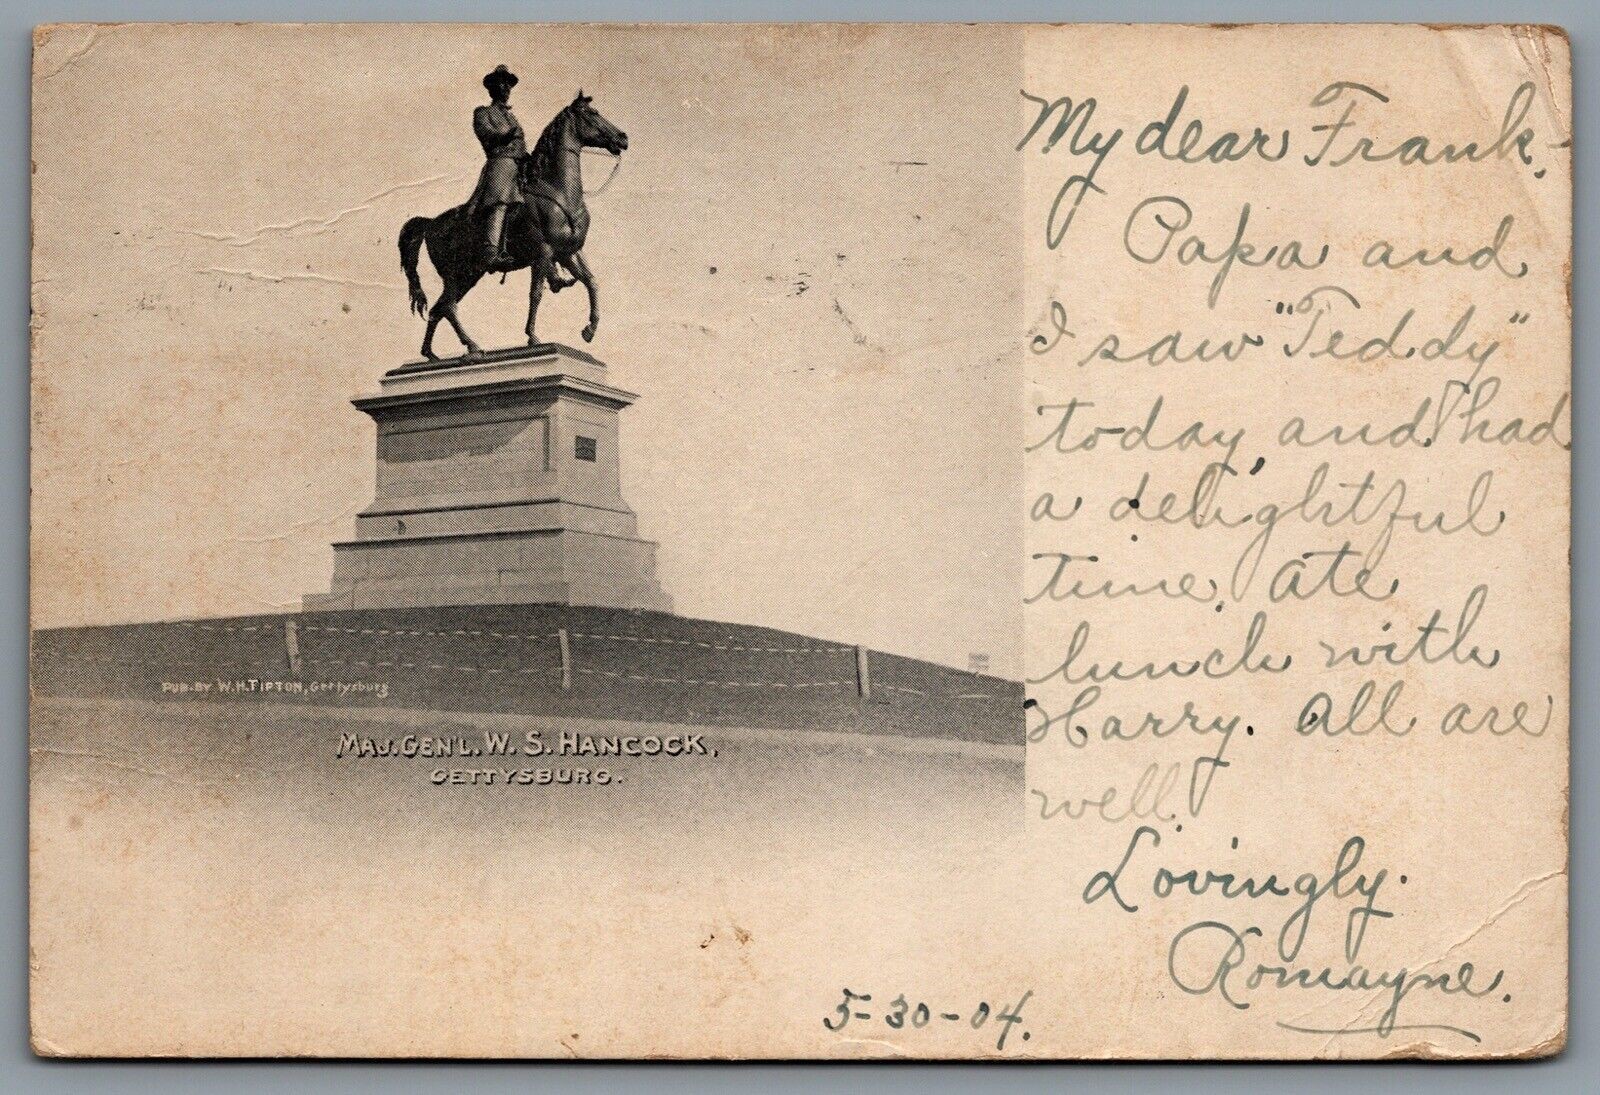 My dear Frank.
Papa and
I saw "Teddy"
today, and had
a delightful
time. Ate
lunch with
Harry. All are
well.
Lovingly.
Romayne.
5-30-04.
PUB. BY W.H. TIPTON, Gettysburg
MAJ. GEN'L. W. S. HANCOCK,
GETTYSBURG.